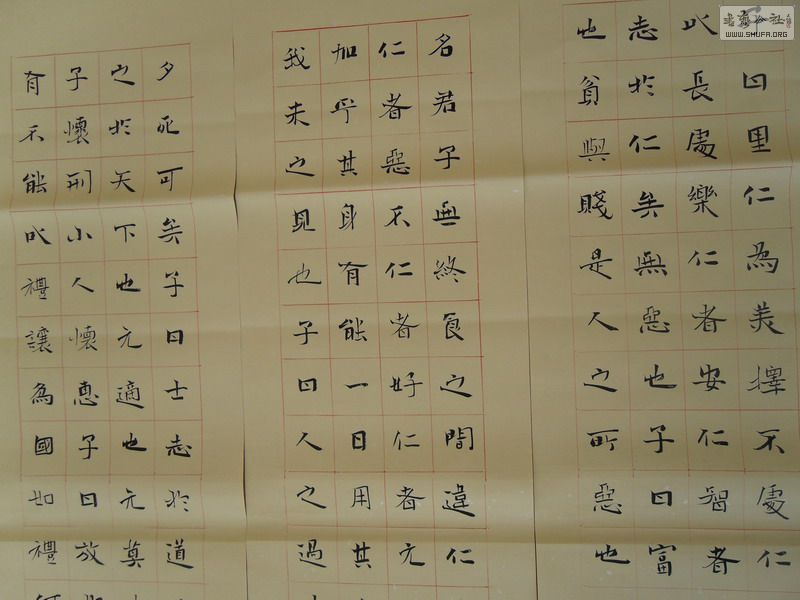 曰里仁為美擇不處仁
以長處樂仁者安仁智者
志於仁矣無惡也子曰富
也貧與賤是人之所惡也
名君子無終食之間違仁
仁者惡不仁者好仁者无
加乎其身有能一日用其
我未之見也子曰人之過
夕死可矣子曰士志於道
之於天下也无適也无莫
子懷刑小人懷惠子曰放
有不能以禮讓為國如禮
WWW.SHUFA.ORG